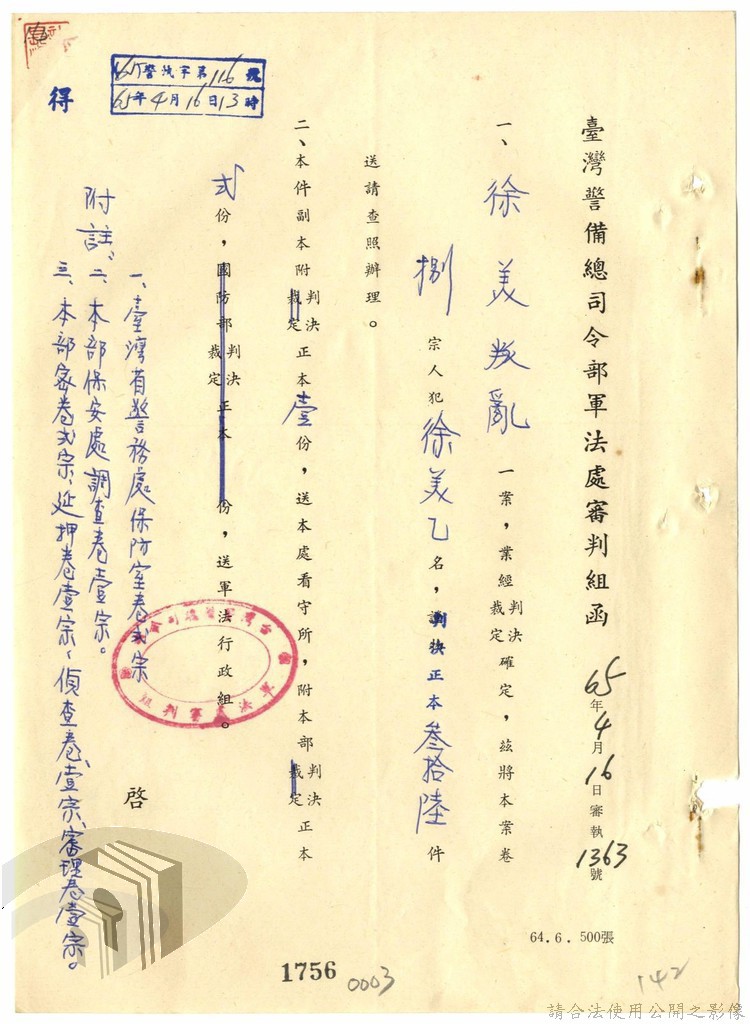 臺灣警備總司令部軍法處審判組函
65年4月16日審執1363號
一、徐美叛亂一案，業經判決裁定確定，茲將本案卷
捌宗人犯徐美乙名，判決正本叁拾陸件
送請查照辦理。
二、本件副本附判決裁定正本壹份，送本處看守所，附本部判決裁定正本
弍份，國防部判決裁定正本 份，送軍法行政組。
啓
附註：
一、臺灣省警務處保防室卷弍宗
二、本部保安處調查卷壹宗。
三、本部家卷弍宗、延押卷壹宗、偵查卷壹宗、審理卷壹宗。
65警法字第116號
65年4月16日13時
得
64.6.500張
1756
0003
142
請合法使用公開之影像